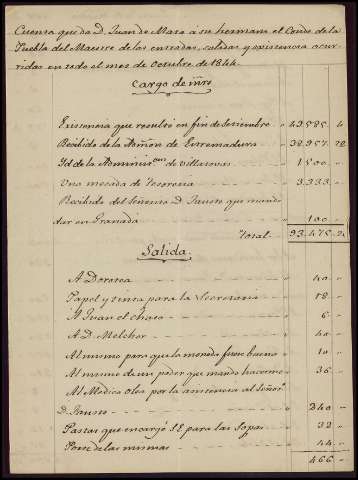 Cuenta que da D. Juan de Mata á su hermano el Conde de la
Puebla del Maestre de las entradas, salidas y existencia ocur-
ridas en todo el mes de Octubre de 1844.
Cargo de
Existencia que resultó en fin de Setiembre " 49.585. 4
Recibido de la Admon de Extremadura " 38.957. 22
Id. de la Administr.on de Villatovas " 1500. "
Una mesada de Tesoreria " 3.333. "
Recibido del Señorito D. Fausto que mandó
dar en Granada " 100. "
Total 93.475. 26
Salida
A Dorotea " 40 "
Papel y tinta para la Secretaria " 18 "
A Juan el chico " 6 "
A D. Melchor " 40 "
Al mismo para que la moneda fuese buena " 10 "
Al mismo de un poder que mandó hacerme " 36 "
Al Medico Olea por la asistencia al Señor.to
D. Fausto " 240 "
Pastas que encargó S.E. para las Sopas " 32 "
Porte de las mismas " 44 "
466 "